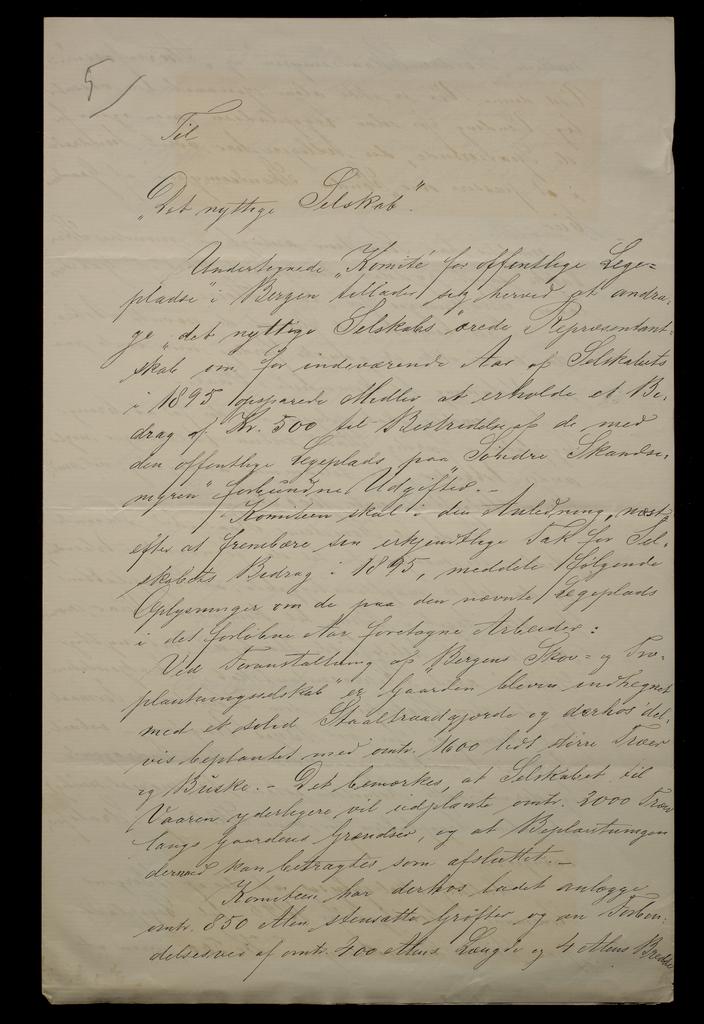 5/
Til
"Det nyttige Selskab".
Undertegnede "Komité for offentlige Lege=
pladse" i Bergen tillader sig herved at andra-
ge "det nyttige Selskabs" ærede Repræsentant-
skab om for indeværende Aar af Selskabets
i 1895 opsparede Midler at erholde et Be-
drag af Kr. 500 til Bestridelse af de med
den offentlige Legeplads paa "Søndre Skandse-
myren" forbundne Udgifter.-
Komiteen skal i den Anledning, næst
efter at frembære sin erkjendtlige Tak for Sel-
skabets Bidrag i 1895, meddele følgende
Oplysninger om de paa den nævnte Legeplads
i det forløbne Aar foretagne Arbeider:
Ved Foranstaltning af "Bergens Skov= og Træ-
plantningsselskab" er Gaarden bleven indhegnet
med et solid Staaltraadgjerde og derhos del-
vis beplantet med omtr. 1600 lidt større Træer
og Buske.- Det bemærkes, at Selskabet til
Vaaren yderligere vil udplante omtr. 2000 Træer
langs Gaardens Grændser, og at Beplantningen
dermed kan betragtes som afsluttet.-
Komiteen har derhos ladet anlægge
omtr. 850 Alen stensatte Grøfter og en Forbin-
delsesvei af omtr. 400 Alens Længde og 4 Alens Bredde